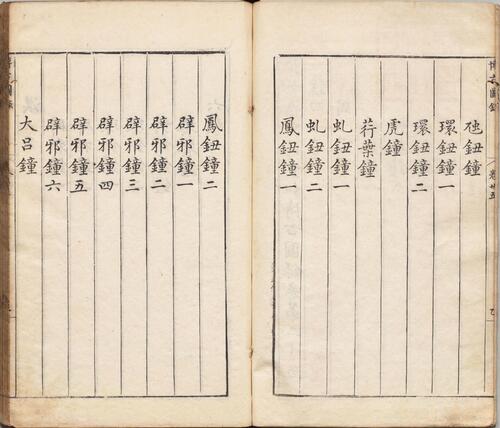 博古圖錄 卷廿五
虺鈕鐘
環鈕鐘一
環鈕鐘二
虎鐘
荇葉鐘
虬鈕鐘一
虬鈕鐘二
鳳鈕鐘一
鳳鈕鐘二
辟邪鐘一
辟邪鐘二
辟邪鐘三
辟邪鐘四
辟邪鐘五
辟邪鐘六
大呂鐘